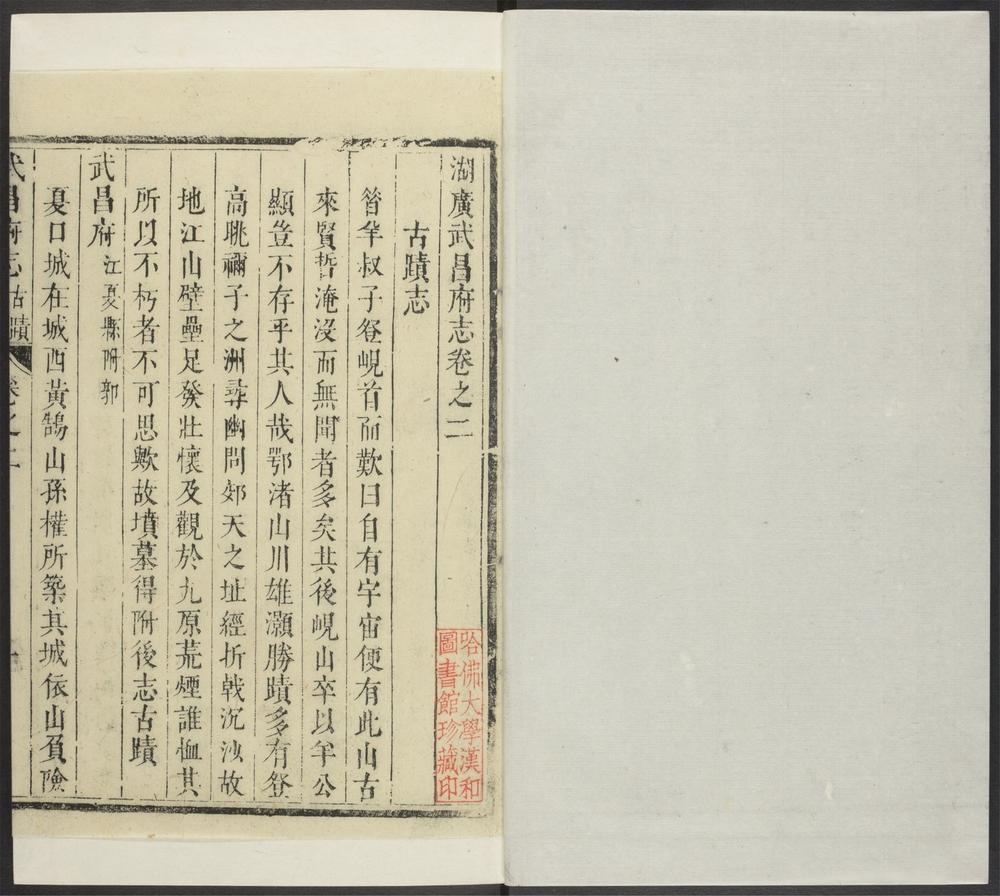 湖廣武昌府志卷之二
古蹟志
昝羊叔子登峴首而歎曰自有宇宙便有此山古
來賢哲淹沒而無聞者多矣其後峴山卒以羊公
顯豈不存乎其人哉鄂渚山川雄灝勝蹟多有登
高眺禰子之洲尋幽問郊天之址經折戟沉沙故
地江山壁壘足發壯懷及觀於九原荒煙誰恤其
所以不朽者不可思歟故墳墓得附後志古蹟
武昌府 江夏縣附郭
夏口城在城西黃鵠山孫權所築其城依山負險
武昌府志 古蹟 卷之二 一
哈佛大學漢和
圖書館珍藏印